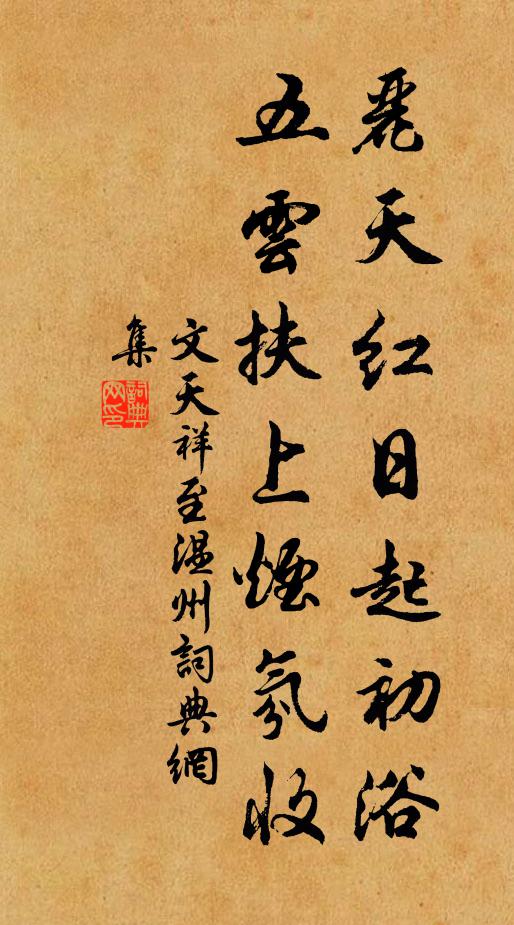 麗天紅日起初浴
五雲扶上煙氛收
文天祥至溫州詞典網
集
詞典網印